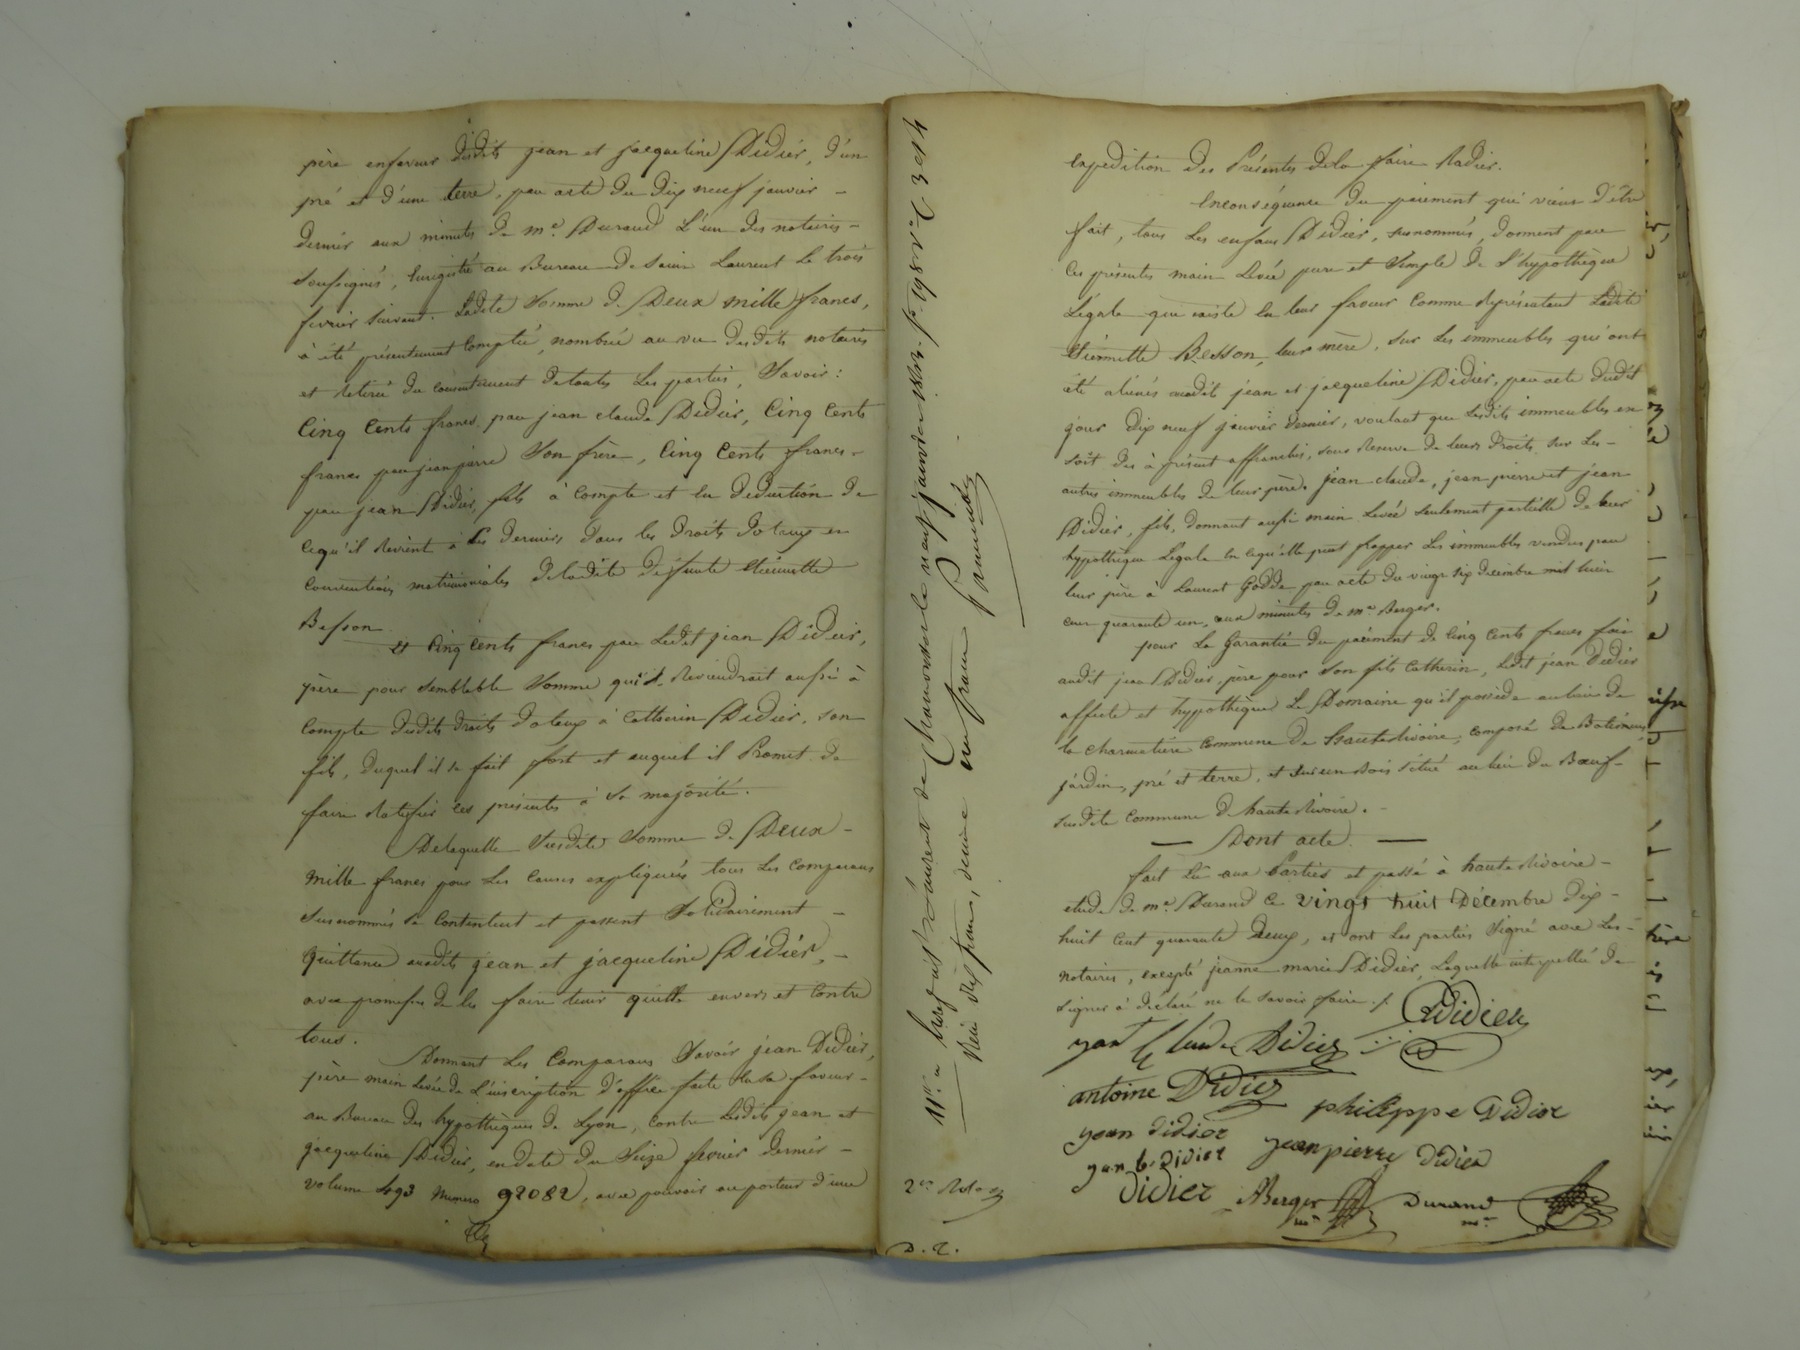 père enfaveur desdits jean et jacqueline Didier, d'un
pré et d'une terre, par acte du dix neuf janvier
dernier aux minutes de me. Durand L'un des notaires
soussignés, Enregistré au Bureau de Saint Laurent le trois
fevrier suivant. Ladite Somme de Deux mille francs,
à été présentement Comptée, nombrée au vu desdits notaires
et retirée du consentement detoutes les parties, Savoir:
Cinq Cents francs par jean claude Didier, Cinq Cents
francs par jean pierre Son frère, Cinq Cents francs
par jean Didier, fils à Compte et en deduction de
cequ'il Revient à ces derniers dans les droits dotaux et
conventions matrimoniales deladite defunte Etiennette
Besson
et Cinq Cents francs par Ledit jean Didier,
père pour semblable Somme qui Reviendrait aussi à
Compte desdits droits dotaux à Catherin Didier, son
fils, duquel il se fait fort et auquel il Promet de
faire Ratifier ces présentes à Sa majorité.
Delaquelle Susdite Somme de Deux
mille francs pour les Causes expliquées tous les Comparans
Susnommés Se Contentent et passent Solidairement
quittance auxdits jean et jacqueline Didier,
avec promesse de les faire tenir quitte envers et Contre
tous.
Donnent les Comparans Savoir jean Didier,
père main Levée de L'inscription d'office faite En sa faveur
au Bureau des hypothèques de Lyon, Contre Lesdits jean et
jacqueline Didier, endate du Seize fevrier dernier
volume 493 Numero 92082, avec pouvoir au porteur d'une
Enregistré à St Laurent de Chamousset le neuf janvier 1843. fo. 198 vo. C. 3 et 4
Reçu dix francs, decime un franc
2es Rôle
D. J.
Expedition des Présentes dela faire Radier.
Enconséquence du paiement qui vient d'être
fait, tous les enfans Didier, susnommés, donnent par
ces présentes main Levée pure et Simple de l'hypothèque
Légale qui existe en leur faveur Comme Représentant Ladite
Etiennette Besson, leur mère, sur les immeubles qui ont
été aliénés auxdits jean et jacqueline Didier, par acte dudit
jour dix neuf janvier dernier, voulant que Lesdits immeubles en
soit dès à présent affranchis, sous Reserve de leurs Droits sur Les
autres immeubles de leur père. jean claude, jean pierre et jean
Didier, fils, donnent aussi main Levée seulement partielle de leur
hypothèque Légale en cequ'elle peut frapper les immeubles vendus par
leur père à Laurent Godde par acte du vingt six decembre mil huit
cent quarante un, aux minutes de me Berger.
pour La Garantie du paiement de Cinq Cents francs fait
audit jean Didier, père pour Son fils Catherin, Ledit jean Didier
affecte et hypothèque Le Domaine qu'il possède au lieu de
la Charmetière Commune de hauterivoire, composé de Batimens,
jardin, pré et terre, et sur un Bois situé au lieu du Bœuf
susdite Commune de hauterivoire.
Dont acte.
fait Lu aux Parties et passé à hauterivoire
etude de me. Durand Ce vingt huit Décembre Dix
huit Cent quarante Deux, et ont les parties Signé avec Les
notaires, excepté jeanne marie Didier, Laquelle interpellée de
signer à déclaré ne le Savoir faire ./.
Didier
jean Claude Didier
antoine Didier
philippe Didier
jean Didier
jean pierre Didier
jean b. Didier
Didier
Berger
nre
Durand
nre